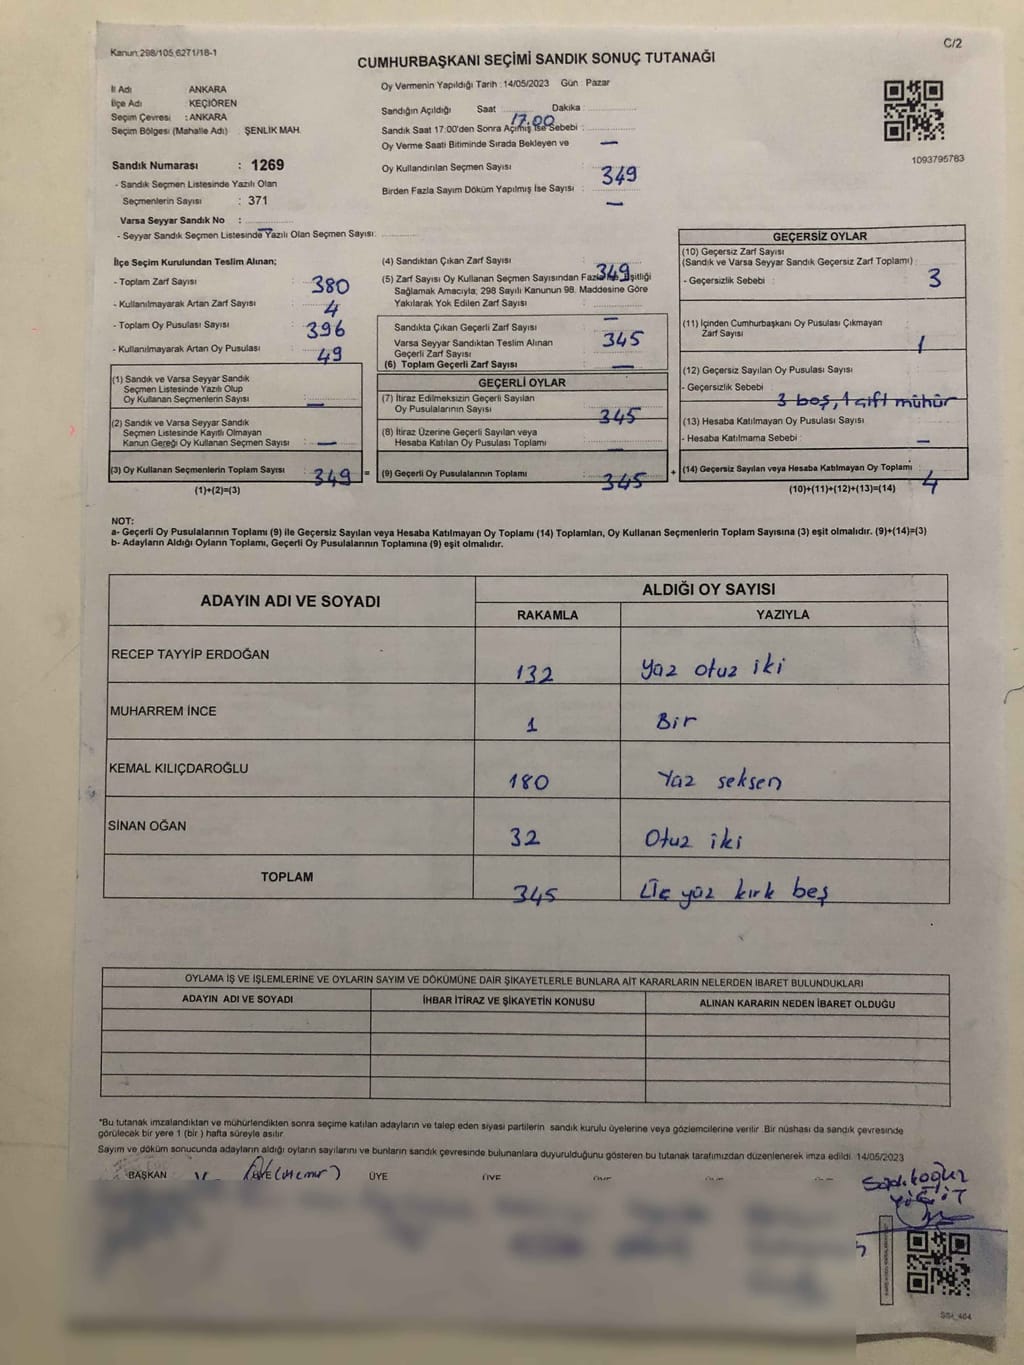 Kanun:298/105,6271/18-1
C/2
CUMHURBAŞKANI SEÇİMİ SANDIK SONUÇ TUTANAĞI
İl Adı ANKARA
İlçe Adı KEÇİÖREN
Seçim Çevresi : ANKARA
Seçim Bölgesi (Mahalle Adı) : ŞENLİK MAH.
Sandık Numarası : 1269
- Sandık Seçmen Listesinde Yazılı Olan
Seçmenlerin Sayısı : 371
Varsa Seyyar Sandık No : —
- Seyyar Sandık Seçmen Listesinde Yazılı Olan Seçmen Sayısı:
Oy Vermenin Yapıldığı Tarih : 14/05/2023 Gün : Pazar
Sandığın Açıldığı Saat 17.00 Dakika :
Sandık Saat 17:00'den Sonra Açılmış İse Sebebi :
Oy Verme Saati Bitiminde Sırada Bekleyen ve —
Oy Kullandırılan Seçmen Sayısı : 349
Birden Fazla Sayım Döküm Yapılmış İse Sayısı : —
1093795783
İlçe Seçim Kurulundan Teslim Alınan;
- Toplam Zarf Sayısı : 380
- Kullanılmayarak Artan Zarf Sayısı : 4
- Toplam Oy Pusulası Sayısı : 396
- Kullanılmayarak Artan Oy Pusulası : 49
(1) Sandık ve Varsa Seyyar Sandık
Seçmen Listesinde Yazılı Olup
Oy Kullanan Seçmenlerin Sayısı : —
(2) Sandık ve Varsa Seyyar Sandık
Seçmen Listesinde Kayıtlı Olmayan
Kanun Gereği Oy Kullanan Seçmen Sayısı : —
(3) Oy Kullanan Seçmenlerin Toplam Sayısı : 349 =
(1)+(2)=(3)
(4) Sandıktan Çıkan Zarf Sayısı : 349
(5) Zarf Sayısı Oy Kullanan Seçmen Sayısından Fazla İse, Eşitliği
Sağlamak Amacıyla; 298 Sayılı Kanunun 98. Maddesine Göre
Yakılarak Yok Edilen Zarf Sayısı : —
Sandıkta Çıkan Geçerli Zarf Sayısı : 345
Varsa Seyyar Sandıktan Teslim Alınan
Geçerli Zarf Sayısı :
(6) Toplam Geçerli Zarf Sayısı : —
GEÇERLİ OYLAR
(7) İtiraz Edilmeksizin Geçerli Sayılan
Oy Pusulalarının Sayısı : 345
(8) İtiraz Üzerine Geçerli Sayılan veya
Hesaba Katılan Oy Pusulası Toplamı : —
(9) Geçerli Oy Pusulalarının Toplamı : 345 +
GEÇERSİZ OYLAR
(10) Geçersiz Zarf Sayısı
(Sandık ve Varsa Seyyar Sandık Geçersiz Zarf Toplamı) :
- Geçersizlik Sebebi : 3
(11) İçinden Cumhurbaşkanı Oy Pusulası Çıkmayan
Zarf Sayısı : 1
(12) Geçersiz Sayılan Oy Pusulası Sayısı :
- Geçersizlik Sebebi : 3 boş, 1 çift mühür
(13) Hesaba Katılmayan Oy Pusulası Sayısı :
- Hesaba Katılmama Sebebi : —
(14) Geçersiz Sayılan veya Hesaba Katılmayan Oy Toplamı : 4
(10)+(11)+(12)+(13)=(14)
NOT:
a- Geçerli Oy Pusulalarının Toplamı (9) ile Geçersiz Sayılan veya Hesaba Katılmayan Oy Toplamı (14) Toplamları, Oy Kullanan Seçmenlerin Toplam Sayısına (3) eşit olmalıdır. (9)+(14)=(3)
b- Adayların Aldığı Oyların Toplamı, Geçerli Oy Pusulalarının Toplamına (9) eşit olmalıdır.
ADAYIN ADI VE SOYADI ALDIĞI OY SAYISI
RAKAMLA YAZIYLA
RECEP TAYYİP ERDOĞAN 132 Yüz otuz iki
MUHARREM İNCE 1 Bir
KEMAL KILIÇDAROĞLU 180 Yüz seksen
SİNAN OĞAN 32 Otuz iki
TOPLAM 345 Üç yüz kırk beş
OYLAMA İŞ VE İŞLEMLERİNE VE OYLARIN SAYIM VE DÖKÜMÜNE DAİR ŞİKAYETLERLE BUNLARA AİT KARARLARIN NELERDEN İBARET BULUNDUKLARI
ADAYIN ADI VE SOYADI İHBAR İTİRAZ VE ŞİKAYETİN KONUSU ALINAN KARARIN NEDEN İBARET OLDUĞU
*Bu tutanak imzalandıktan ve mühürlendikten sonra seçime katılan adayların ve talep eden siyasi partilerin sandık kurulu üyelerine veya gözlemcilerine verilir. Bir nüshası da sandık çevresinde
görülecek bir yere 1 (bir) hafta süreyle asılır.
Sayım ve döküm sonucunda adayların aldığı oyların sayılarını ve bunların sandık çevresinde bulunanlara duyurulduğunu gösteren bu tutanak tarafımızdan düzenlenerek imza edildi. 14/05/2023
BAŞKAN ÜYE ÜYE
YİĞİT